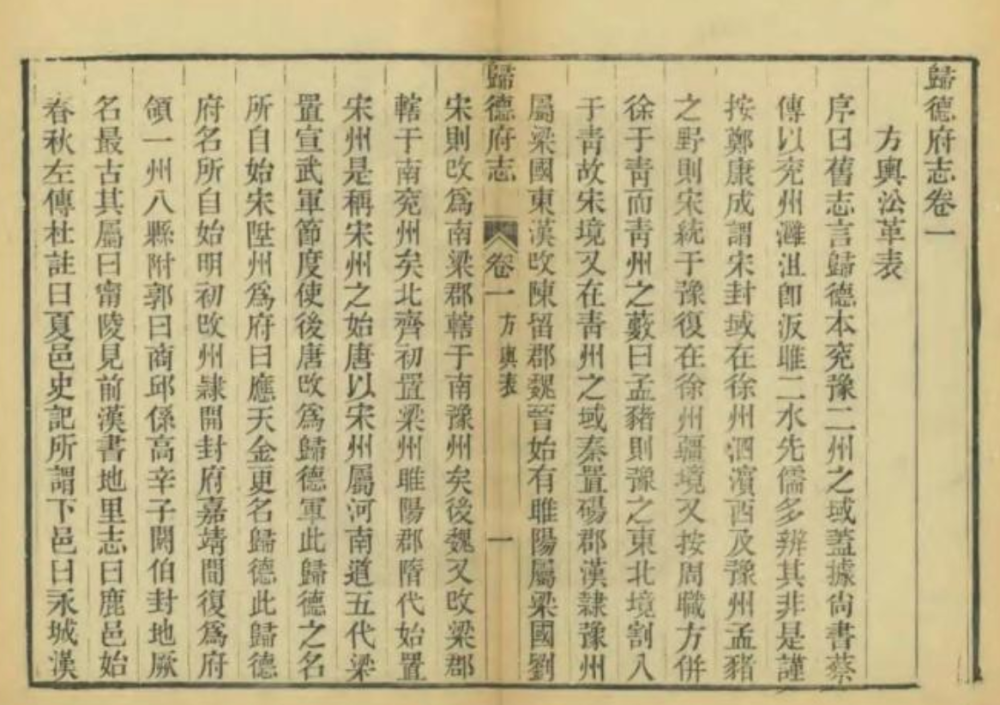 歸德府志卷一
方輿沿革表
序曰舊志言歸德本兖豫二州之域蓋據尚書蔡
傳以兖州灉沮卽汳睢二水先儒多辨其非是謹
按鄭康成謂宋封域在徐州泗濱西及豫州孟豬
之野則宋統于豫復在徐州疆境又按周職方併
徐于靑而靑州之藪曰孟豬則豫之東北境割入
于靑故宋境又在靑州之域秦置碭郡漢隸豫州
屬梁國東漢改陳留郡魏晉始有睢陽屬梁國劉
歸德府志 卷一 方輿表 一
宋則改爲南梁郡轄于南豫州矣後魏又改梁郡
轄于南兖州矣北齊初置梁州睢陽郡隋代始置
宋州是稱宋州之始唐以宋州屬河南道五代梁
置宣武軍節度使後唐改爲歸德軍此歸德之名
所自始宋陞州爲府曰應天金更名歸德此歸德
府名所自始明初改州隸開封府嘉靖間復爲府
領一州八縣附郭曰商邱係高辛子閼伯封地厥
名最古其屬曰甯陵見前漢書地里志曰鹿邑始
春秋左傳杜註曰夏邑史記所謂下邑曰永城漢